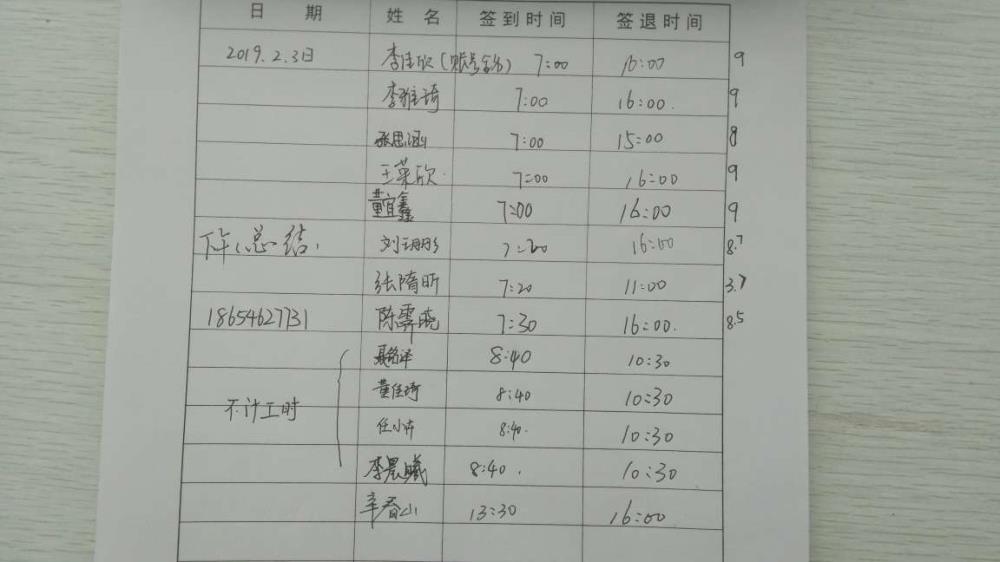 日 期 姓 名 签到时间 签退时间
2019.2.3日 李佳欣( 7:00 16:00 9
李雅琦 7:00 16:00. 9
张思涵 7:00 15:00 8
王荣欣 7:00 16:00 9
董宜鑫 7:00 16:00 9
总结. 7:20 16:00 8.7
张隋昕 7:20 11:00 3.7
18654627731 陈霁晓 7:30 16:00. 8.5
8:40 10:30
董佳琦 8:40 10:30
不计工时 任小卉 8:40. 10:30
李晨曦 8:40. 10:30
辛春山 13:30 16:00